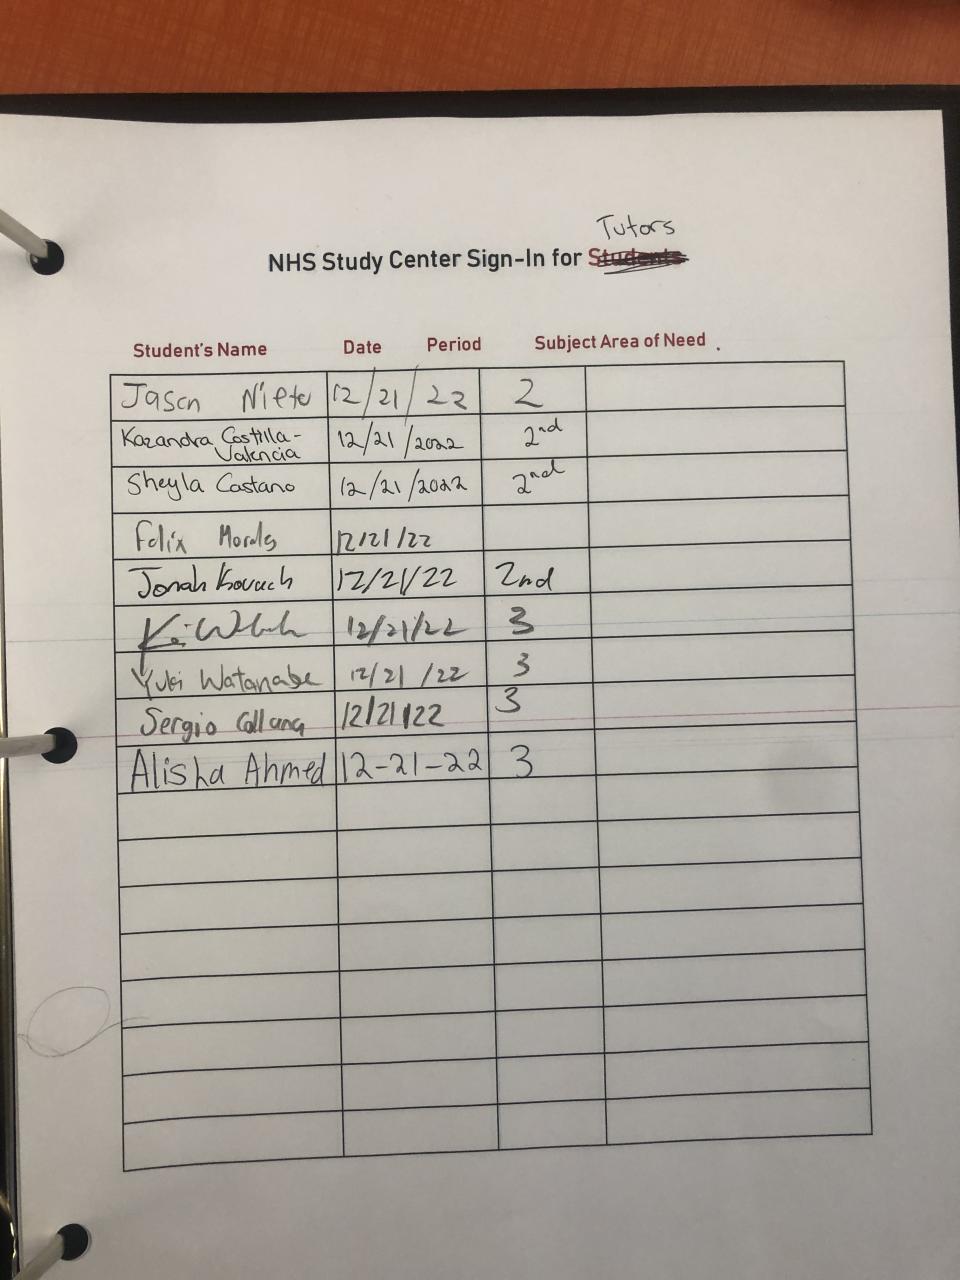 Tutors
NHS Study Center Sign-In for Students
Student's Name Date Period Subject Area of Need
Jason Nieto 12/21/22 2
Kazandra Costilla-
Valencia 12/21/2022 2nd
Sheyla Castano 12/21/2022 2nd
Felix Morales 12/21/22
Jonah Kovach 12/21/22 2nd
12/21/22 3
Yuki Watanabe 12/21/22 3
Sergio 12/21/22 3
Alisha Ahmed 12-21-22 3